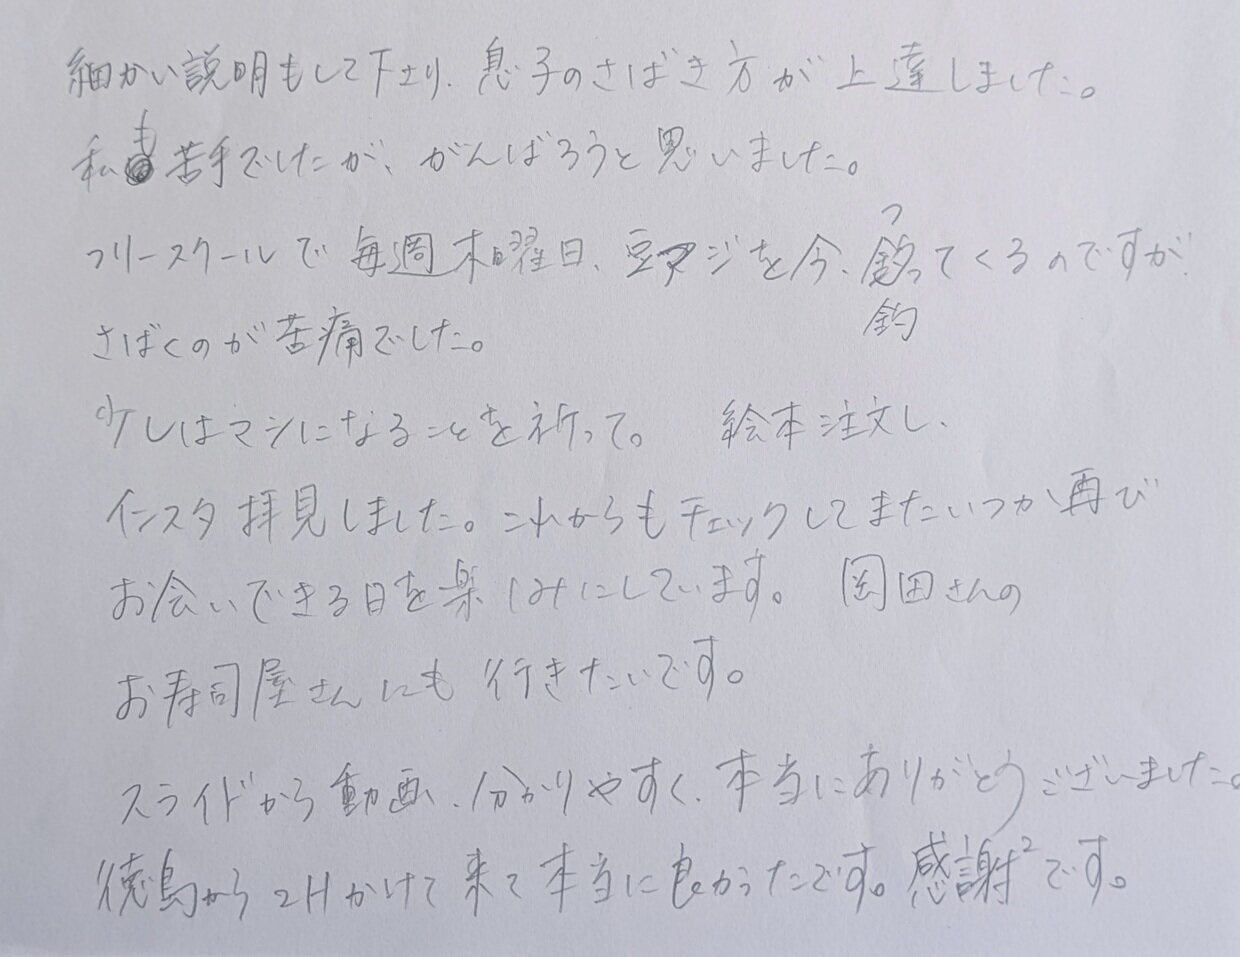 細かい説明もして下さり、息子のさばき方が上達しました。
私も苦手でしたが、がんばろうと思いました。
フリースクールで毎週木曜日、豆アジを今、釣ってくるのですが、
つ
釣
さばくのが苦痛でした。
少しはマシになることを祈って。 絵本注文し、
インスタ拝見しました。これからもチェックしてまたいつか再び
お会いできる日を楽しみにしています。 岡田さんの
お寿司屋さんにも行きたいです。
スライドから動画、分かりやすく、本当にありがとうございました。
徳島から2Hかけて来て本当に良かったです。感謝²です。